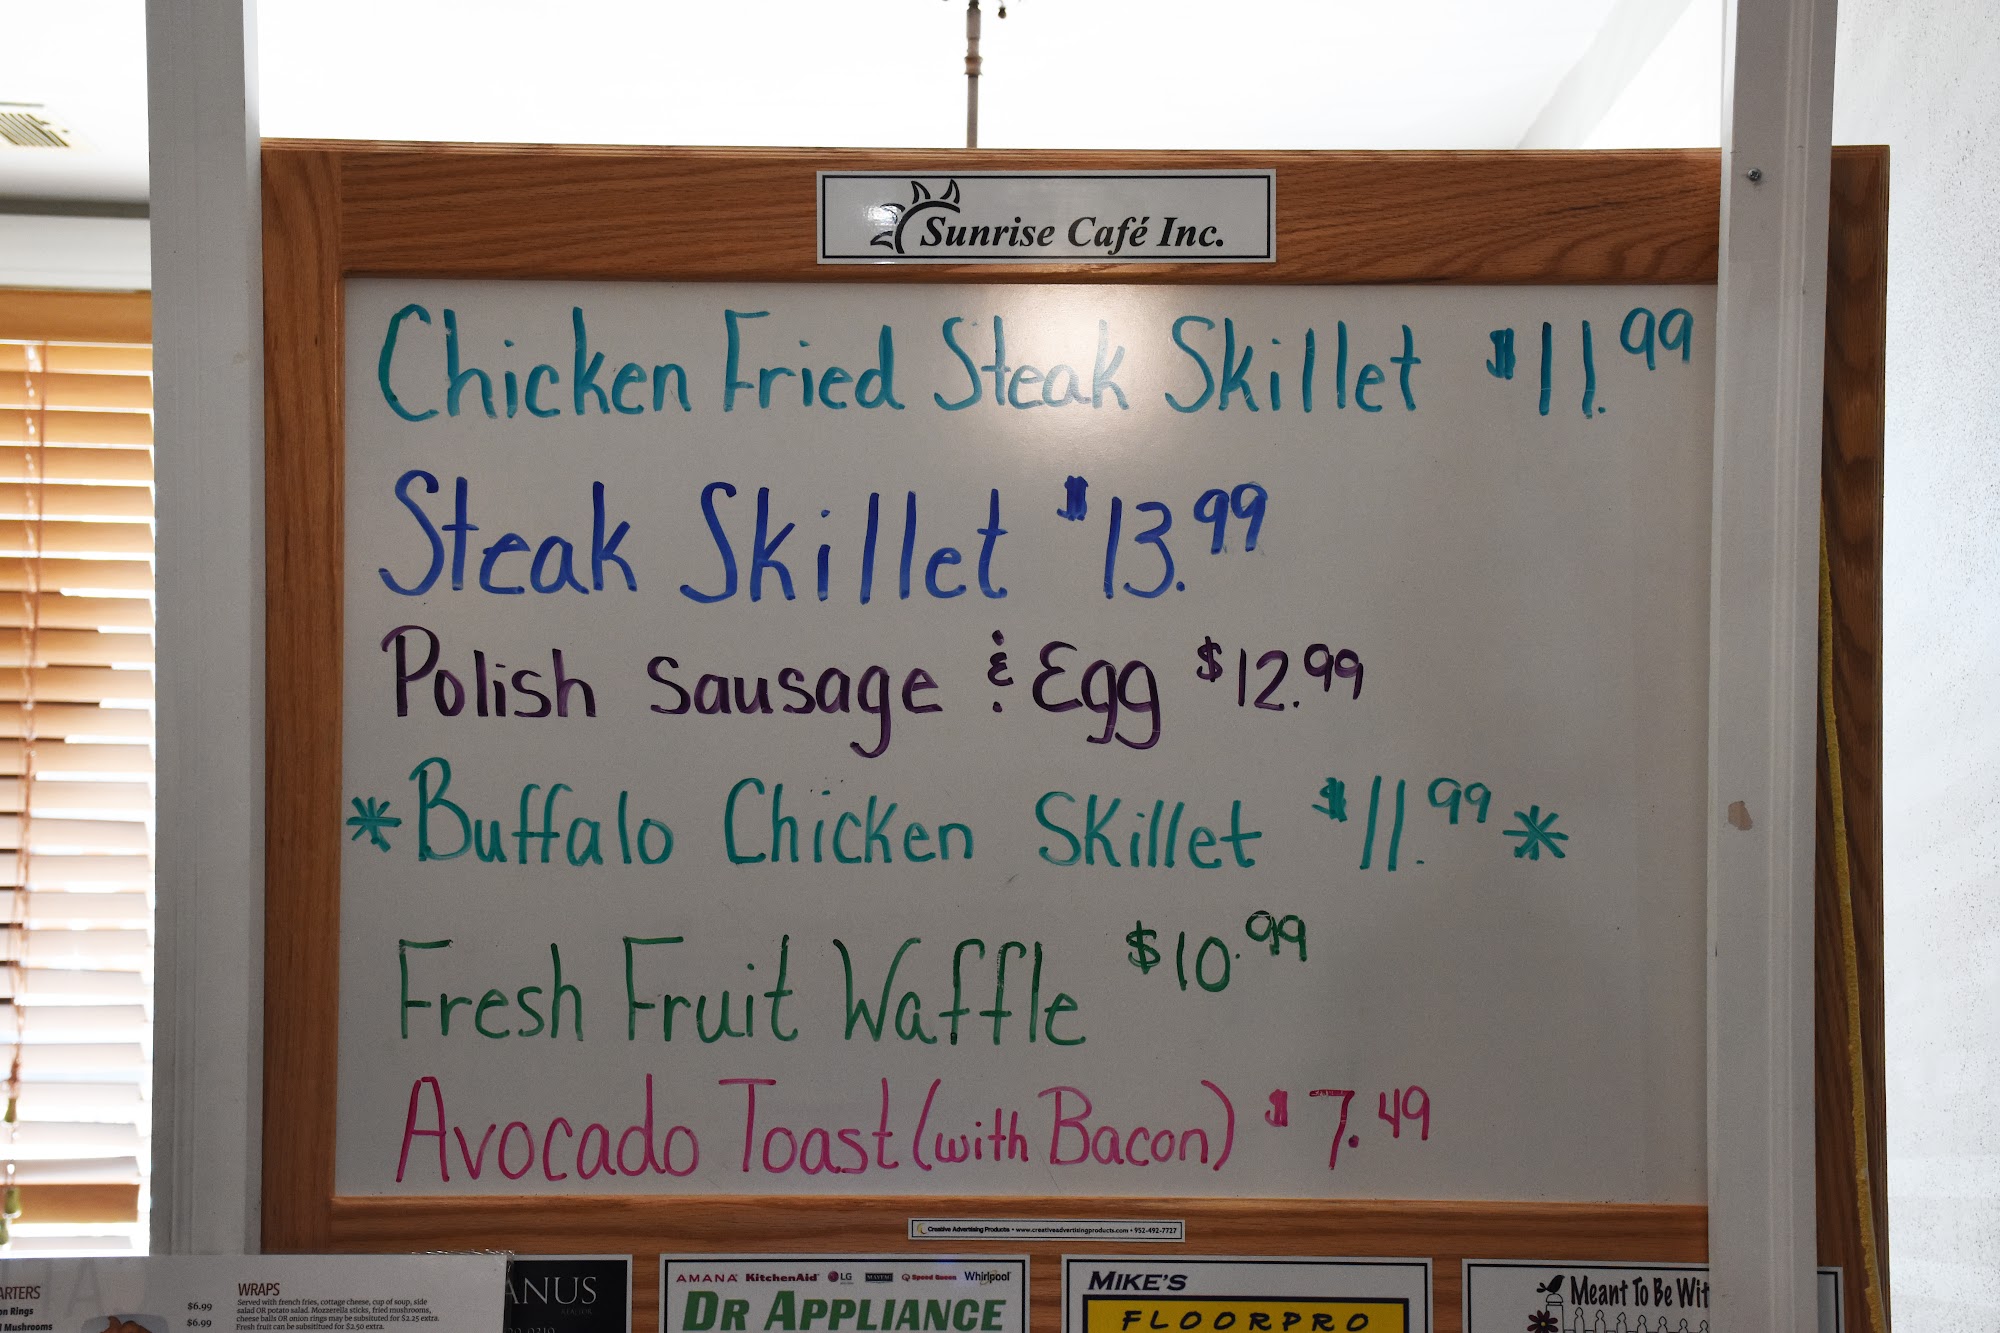 Sunrise Café Inc.
Chicken Fried Steak Skillet $11.99
Steak Skillet $13.99
Polish Sausage & Egg $12.99
*Buffalo Chicken Skillet $11.99*
Fresh Fruit Waffle $10.99
Avocado Toast (with Bacon) $7.49
Creative Advertising Products • www.creativeadvertisingproducts.com • 952-492-7727
ARTERS
on Rings $6.99
Mushrooms $6.99
WRAPS
Served with french fries, cottage cheese, cup of soup, side
salad OR potato salad. Mozzerella sticks, fried mushrooms,
cheese balls OR onion rings may be substituted for $2.25 extra.
Fresh fruit can be substitued for $2.50 extra.
ANUS
AMANA KitchenAid LG MAYTAG Speed Queen Whirlpool
DR APPLIANCE
MIKE'S
FLOORPRO
Meant To Be Wit